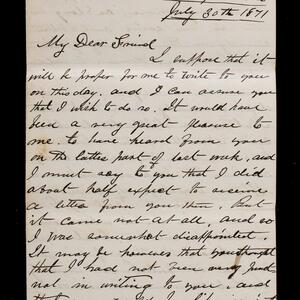 July 30th 1871
My Dear Friend
I suppose that it
will be proper for me to write to you
on this day. and I can assure you
that I wish to do so. It would have
been a very great pleasure to
me. to have heard from you
on the latter part of last week, and
I must say to you that I did
about half expect to receive
a letter from you then. But
it came not at all, and so
I was somewhat disappointed.
It may be however that you thought
that I had not been very
not in writing to you. and